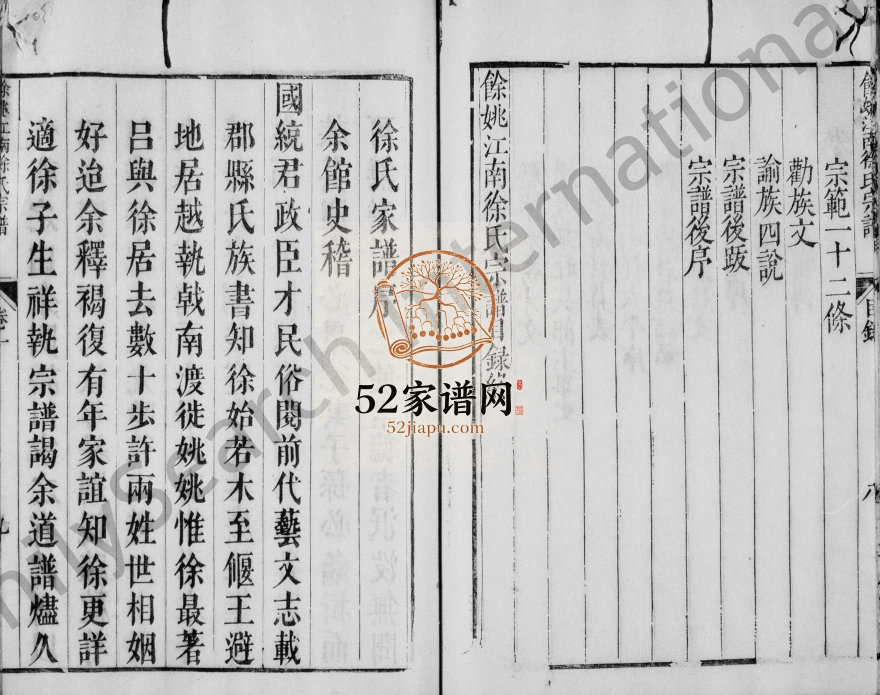 餘姚江南徐氏宗譜
目錄
八
宗範一十二條
勸族文
諭族四說
宗譜後跋
宗譜後序
餘姚江南徐氏宗譜目錄終
徐氏家譜序
余館史稽
國統君政臣才民俗閱前代藝文志載
郡縣氏族書知徐始若木至偃王避
地居越執戟南渡徙姚姚惟徐最著
呂與徐居去數十步許兩姓世相姻
好迨余釋褐復有年家誼知徐更詳
適徐子生祥執宗譜謁余道譜燼久
餘姚江南徐氏宗譜
卷一
九
52家谱网
52jiapu.com
FamilySearch International